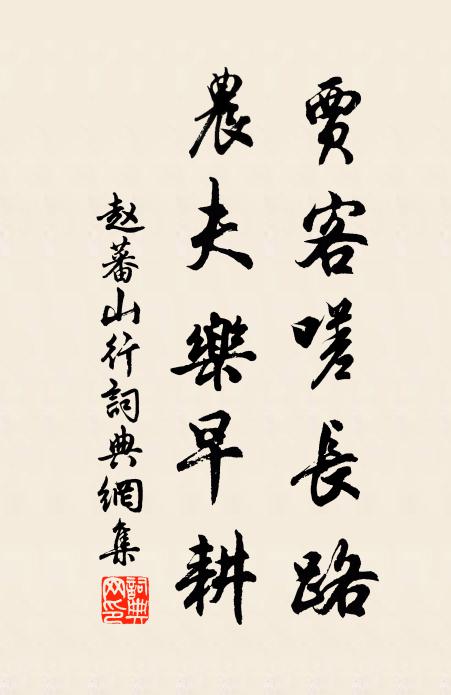 賈客嗟長路
農夫樂早耕
赵蕃山行詞典網集
詞典
网印